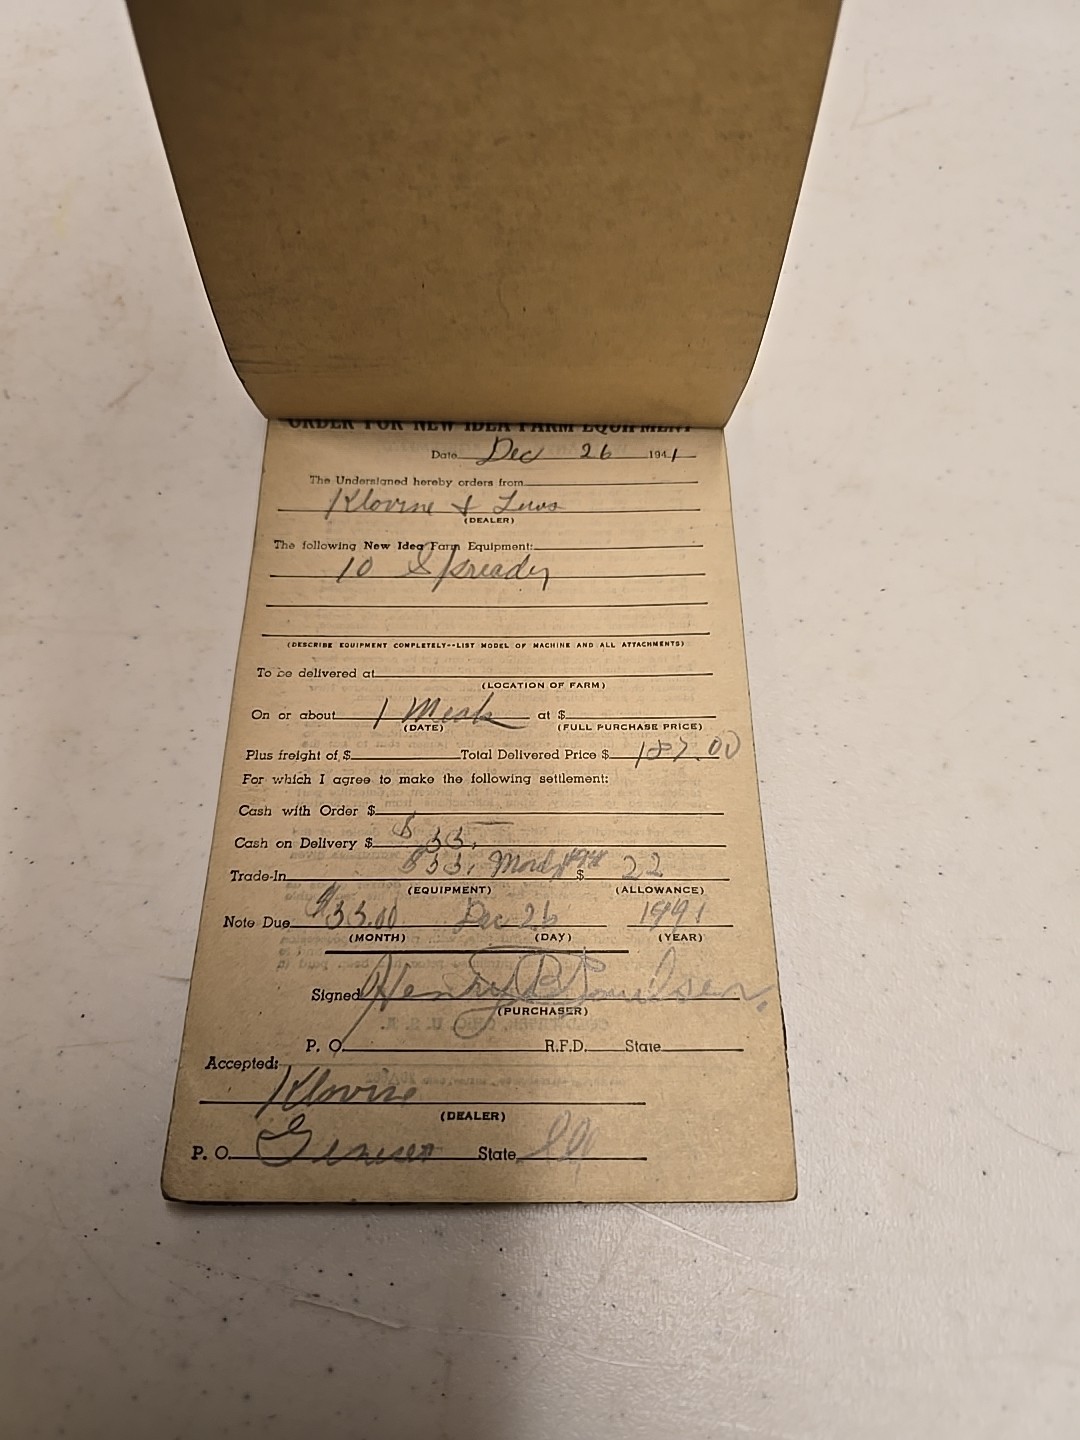 ORDER FOR NEW IDEA FARM EQUIPMENT
Date Dec 26 1941
The Undersigned hereby orders from
Klovine &
(DEALER)
The following New Idea Farm Equipment:
10
(DESCRIBE EQUIPMENT COMPLETELY--LIST MODEL OF MACHINE AND ALL ATTACHMENTS)
To be delivered at
(LOCATION OF FARM)
On or about 1 at $
(DATE) (FULL PURCHASE PRICE)
Plus freight of $ Total Delivered Price $ 187.00
For which I agree to make the following settlement:
Cash with Order $
Cash on Delivery $ $55.
Trade-In $55. $ 22
(EQUIPMENT) (ALLOWANCE)
Note Due $55.00 Dec 26 1941
(MONTH) (DAY) (YEAR)
Signed Henry
(PURCHASER)
P. O. R.F.D. State
Accepted:
Klovine
(DEALER)
P. O. State Ill